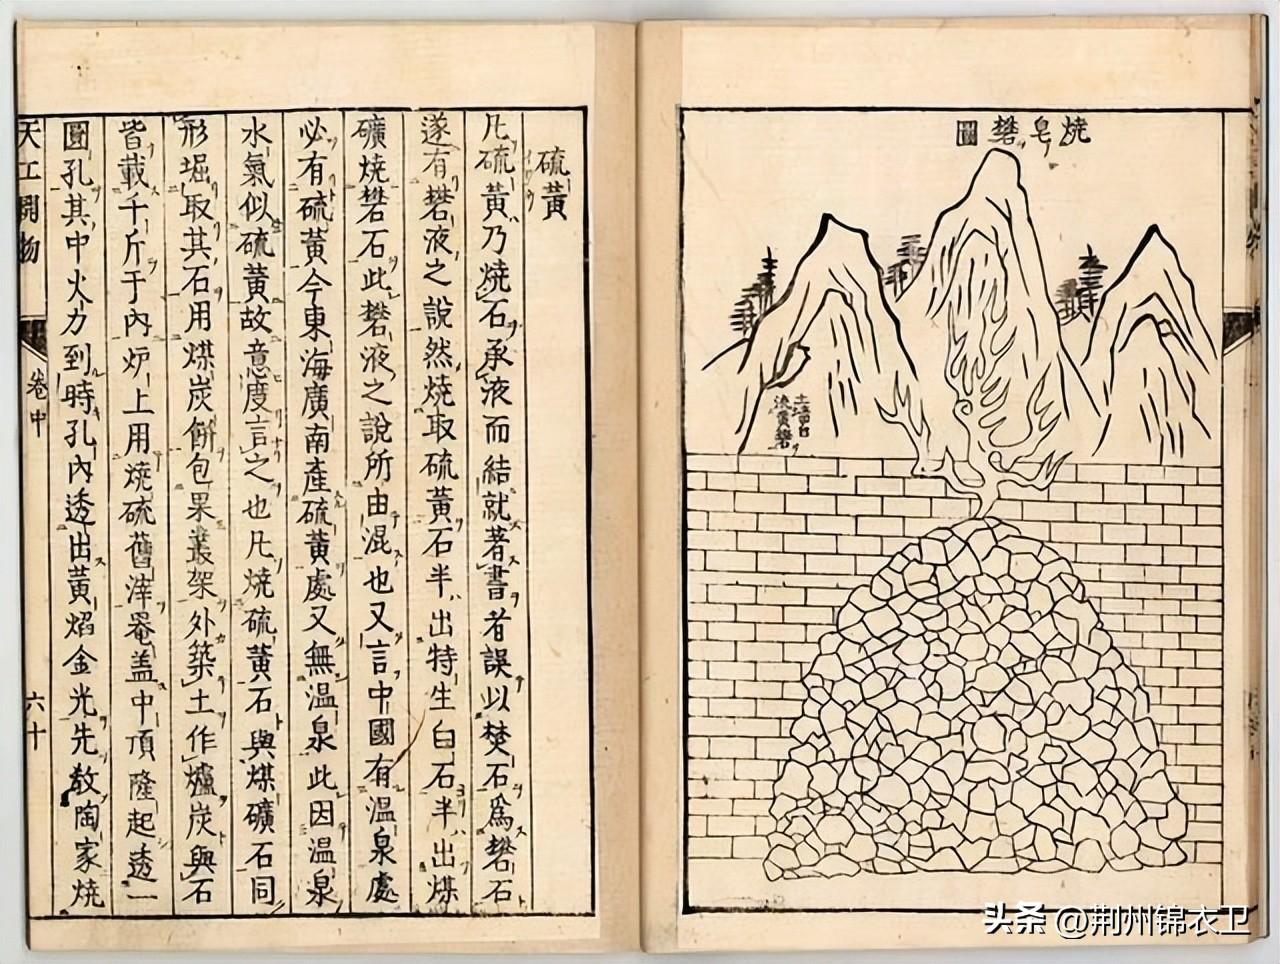 燒皂礬圖
硫黃
凡硫黃乃燒石承液而結就著書者誤以焚石爲礬石
遂有礬液之說然燒取硫黃石半出特生白石半出煤
礦燒礬石此礬液之說所由混也又言中國有溫泉處
必有硫黃今東海廣南產硫黃處又無溫泉此因溫泉
水氣似硫黃故意度言之也凡燒硫黃石與煤礦石同
形掘取其石用煤炭餅包果叢架外築土作爐炭與石
皆載千斤于內炉上用燒硫舊滓罨盖中頂隆起透一
圓孔其中火力到時孔內透出黃焰金光先教陶家燒
天工開物 卷中 六十
头条 @荆州锦衣卫